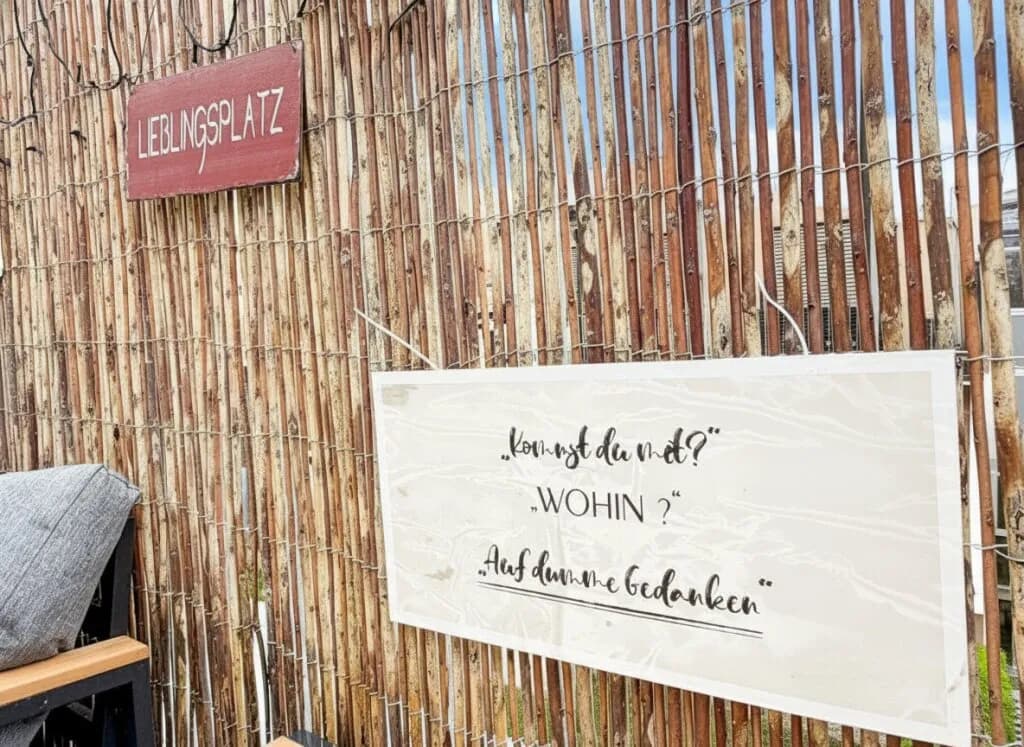 LIEBLINGSPLATZ
„Kommst du mit?“
„WOHIN ?“
„Auf dumme Gedanken“